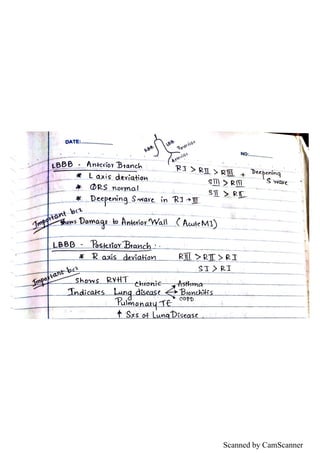 DATE:
RBB LBB Posterior
Anterior
NO:
LBBB - Anterior Branch
RI > RII > RIII + Deepening S wave
* L axis deviation
SIII > RIII
* QRS normal
SII > RII
* Deepening S wave in RI → III
Important bcz
shows Damage to Anterior Wall (Acute MI)
LBBB - Posterior Branch :-
* R axis deviation RIII > RII > RI
SI > RI
Important bcz
shows RVHT
Indicates Lung disease Chronic → Asthma
→ Bronchitis
→ COPD
Pulmonary TE
↑ Sxs of Lung Disease.
Scanned by CamScanner